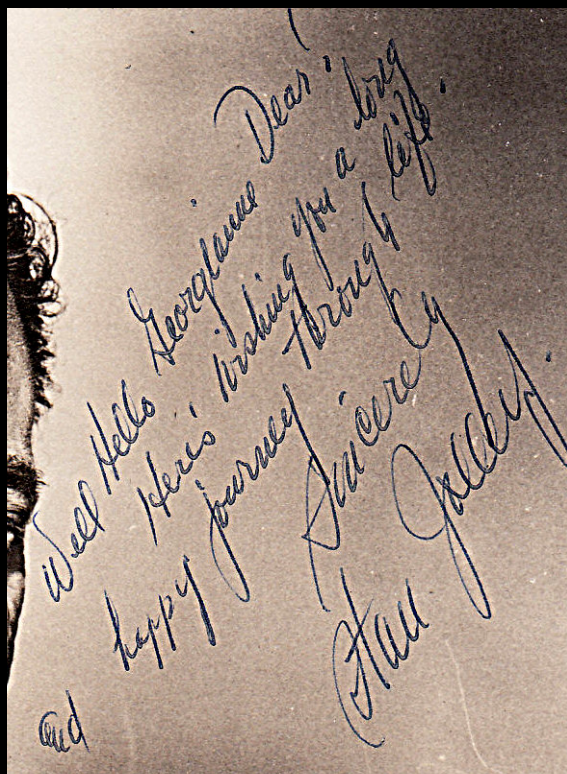 Well Hello Georgianne Dear!
Here's wishing you a long
and happy journey through life.
Sincerely
Stan